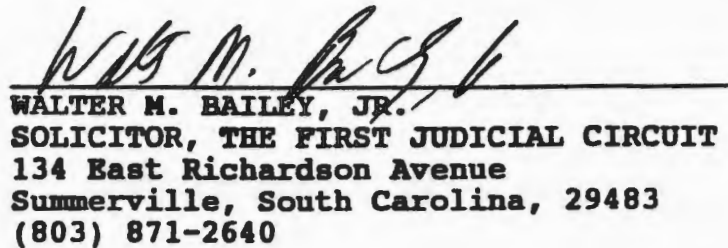 Walter M. Bailey, Jr.
WALTER M. BAILEY, JR.
SOLICITOR, THE FIRST JUDICIAL CIRCUIT
134 East Richardson Avenue
Summerville, South Carolina, 29483
(803) 871-2640